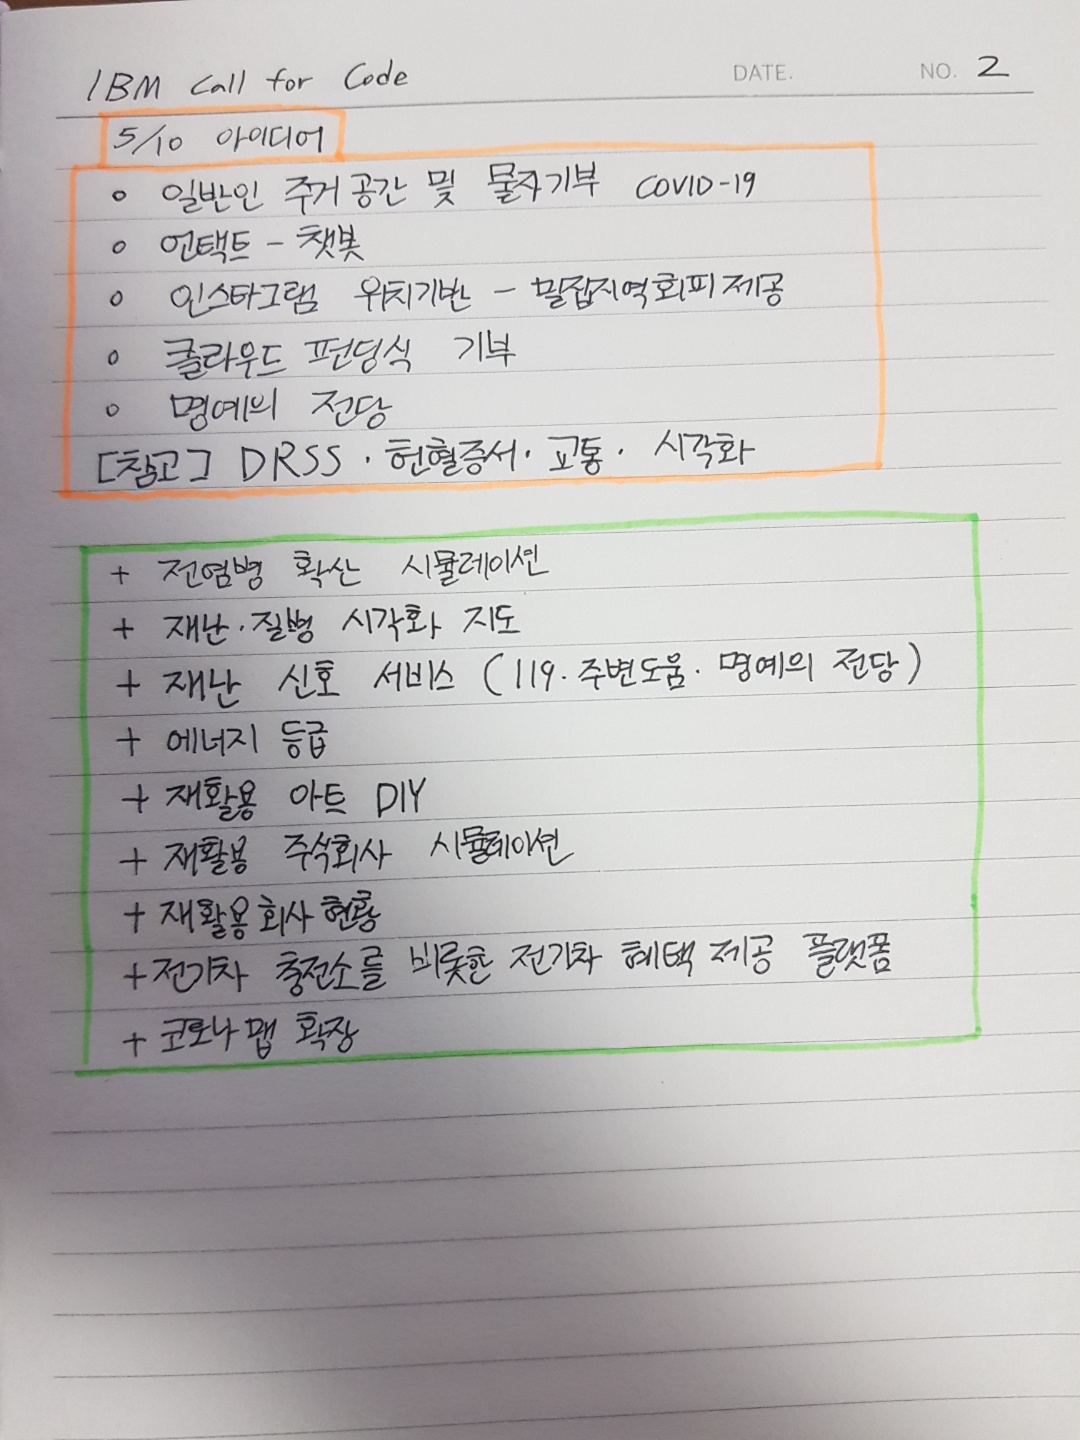 IBM Call for Code
DATE. NO. 2
5/10 아이디어
o 일반인 주거공간 및 물자기부 COVID-19
o 언택트 - 챗봇
o 인스타그램 위치기반 - 밀집지역회피제공
o 클라우드 펀딩식 기부
o 명예의 전당
[참고] DRSS · 헌혈증서 · 교통 · 시각화
+ 전염병 확산 시뮬레이션
+ 재난·질병 시각화 지도
+ 재난 신호 서비스 (119·주변도움·명예의 전당)
+ 에너지 등급
+ 재활용 아트 DIY
+ 재활용 주식회사 시뮬레이션
+ 재활용회사현황
+ 전기차 충전소를 비롯한 전기차 혜택 제공 플랫폼
+ 코로나맵 확장